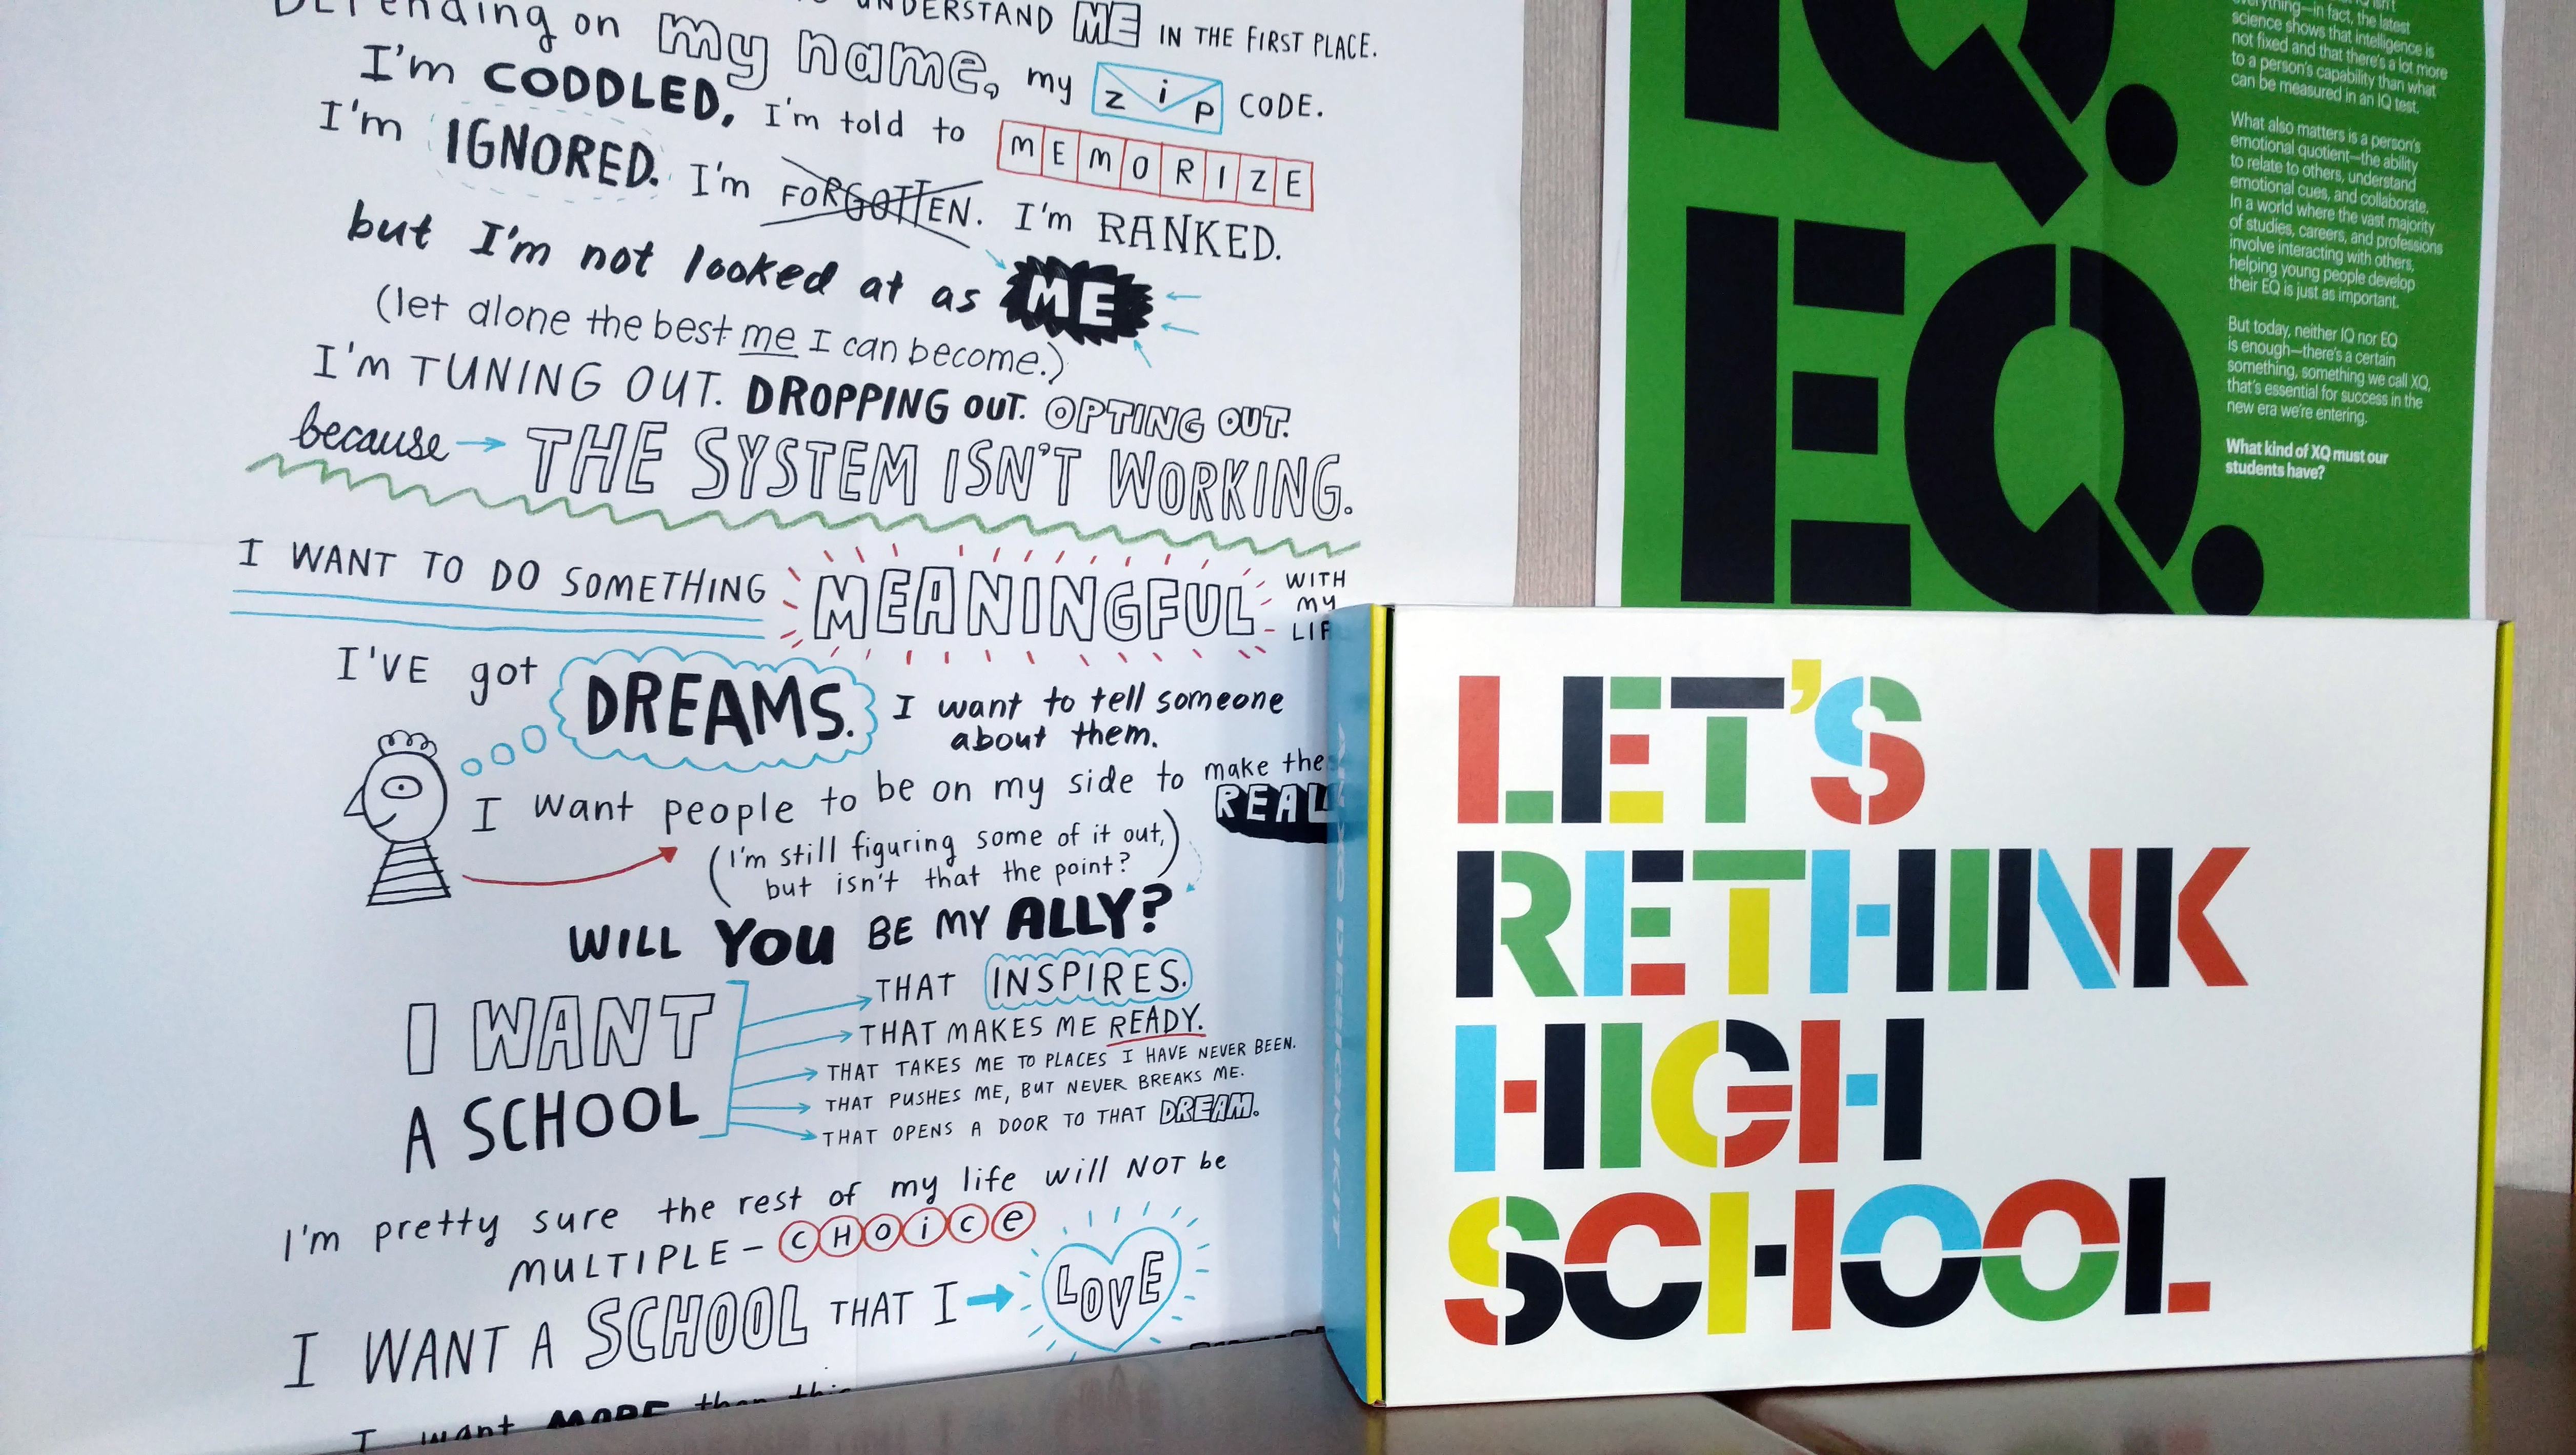 UNDERSTAND ME IN THE FIRST PLACE.
Depending on my name, my zip CODE.
I'm CODDLED, I'm told to MEMORIZE
I'm IGNORED. I'm FORGOTTEN. I'm RANKED.
but I'm not looked at as ME
(let alone the best me I can become.)
I'm TUNING OUT. DROPPING OUT. OPTING OUT.
because → THE SYSTEM ISN'T WORKING.
I WANT TO DO SOMETHING MEANINGFUL WITH MY
I'VE got DREAMS. I want to tell someone
about them.
I want people to be on my side to make
REAL
(I'm still figuring some of it out,
but isn't that the point?)
WILL YOU BE MY ALLY?
I WANT
A SCHOOL
THAT INSPIRES.
THAT MAKES ME READY.
THAT TAKES ME TO PLACES I HAVE NEVER BEEN.
THAT PUSHES ME, BUT NEVER BREAKS ME.
THAT OPENS A DOOR TO THAT DREAM.
I'm pretty sure the rest of my life will NOT be
MULTIPLE-CHOiCe
I WANT A SCHOOL THAT I → LOVE
I want MORE than this
IQ.
EQ.
everything—in fact, the latest
science shows that intelligence is
not fixed and that there's a lot more
to a person's capability than what
can be measured in an IQ test.
What also matters is a person's
emotional quotient—the ability
to relate to others, understand
emotional cues, and collaborate.
In a world where the vast majority
of studies, careers, and professions
involve interacting with others,
helping young people develop
their EQ is just as important.
But today, neither IQ nor EQ
is enough—there's a certain
something, something we call XQ,
that's essential for success in the
new era we're entering.
What kind of XQ must our
students have?
AN XQ DESIGN KIT
LET'S
RETHINK
HIGH
SCHOOL